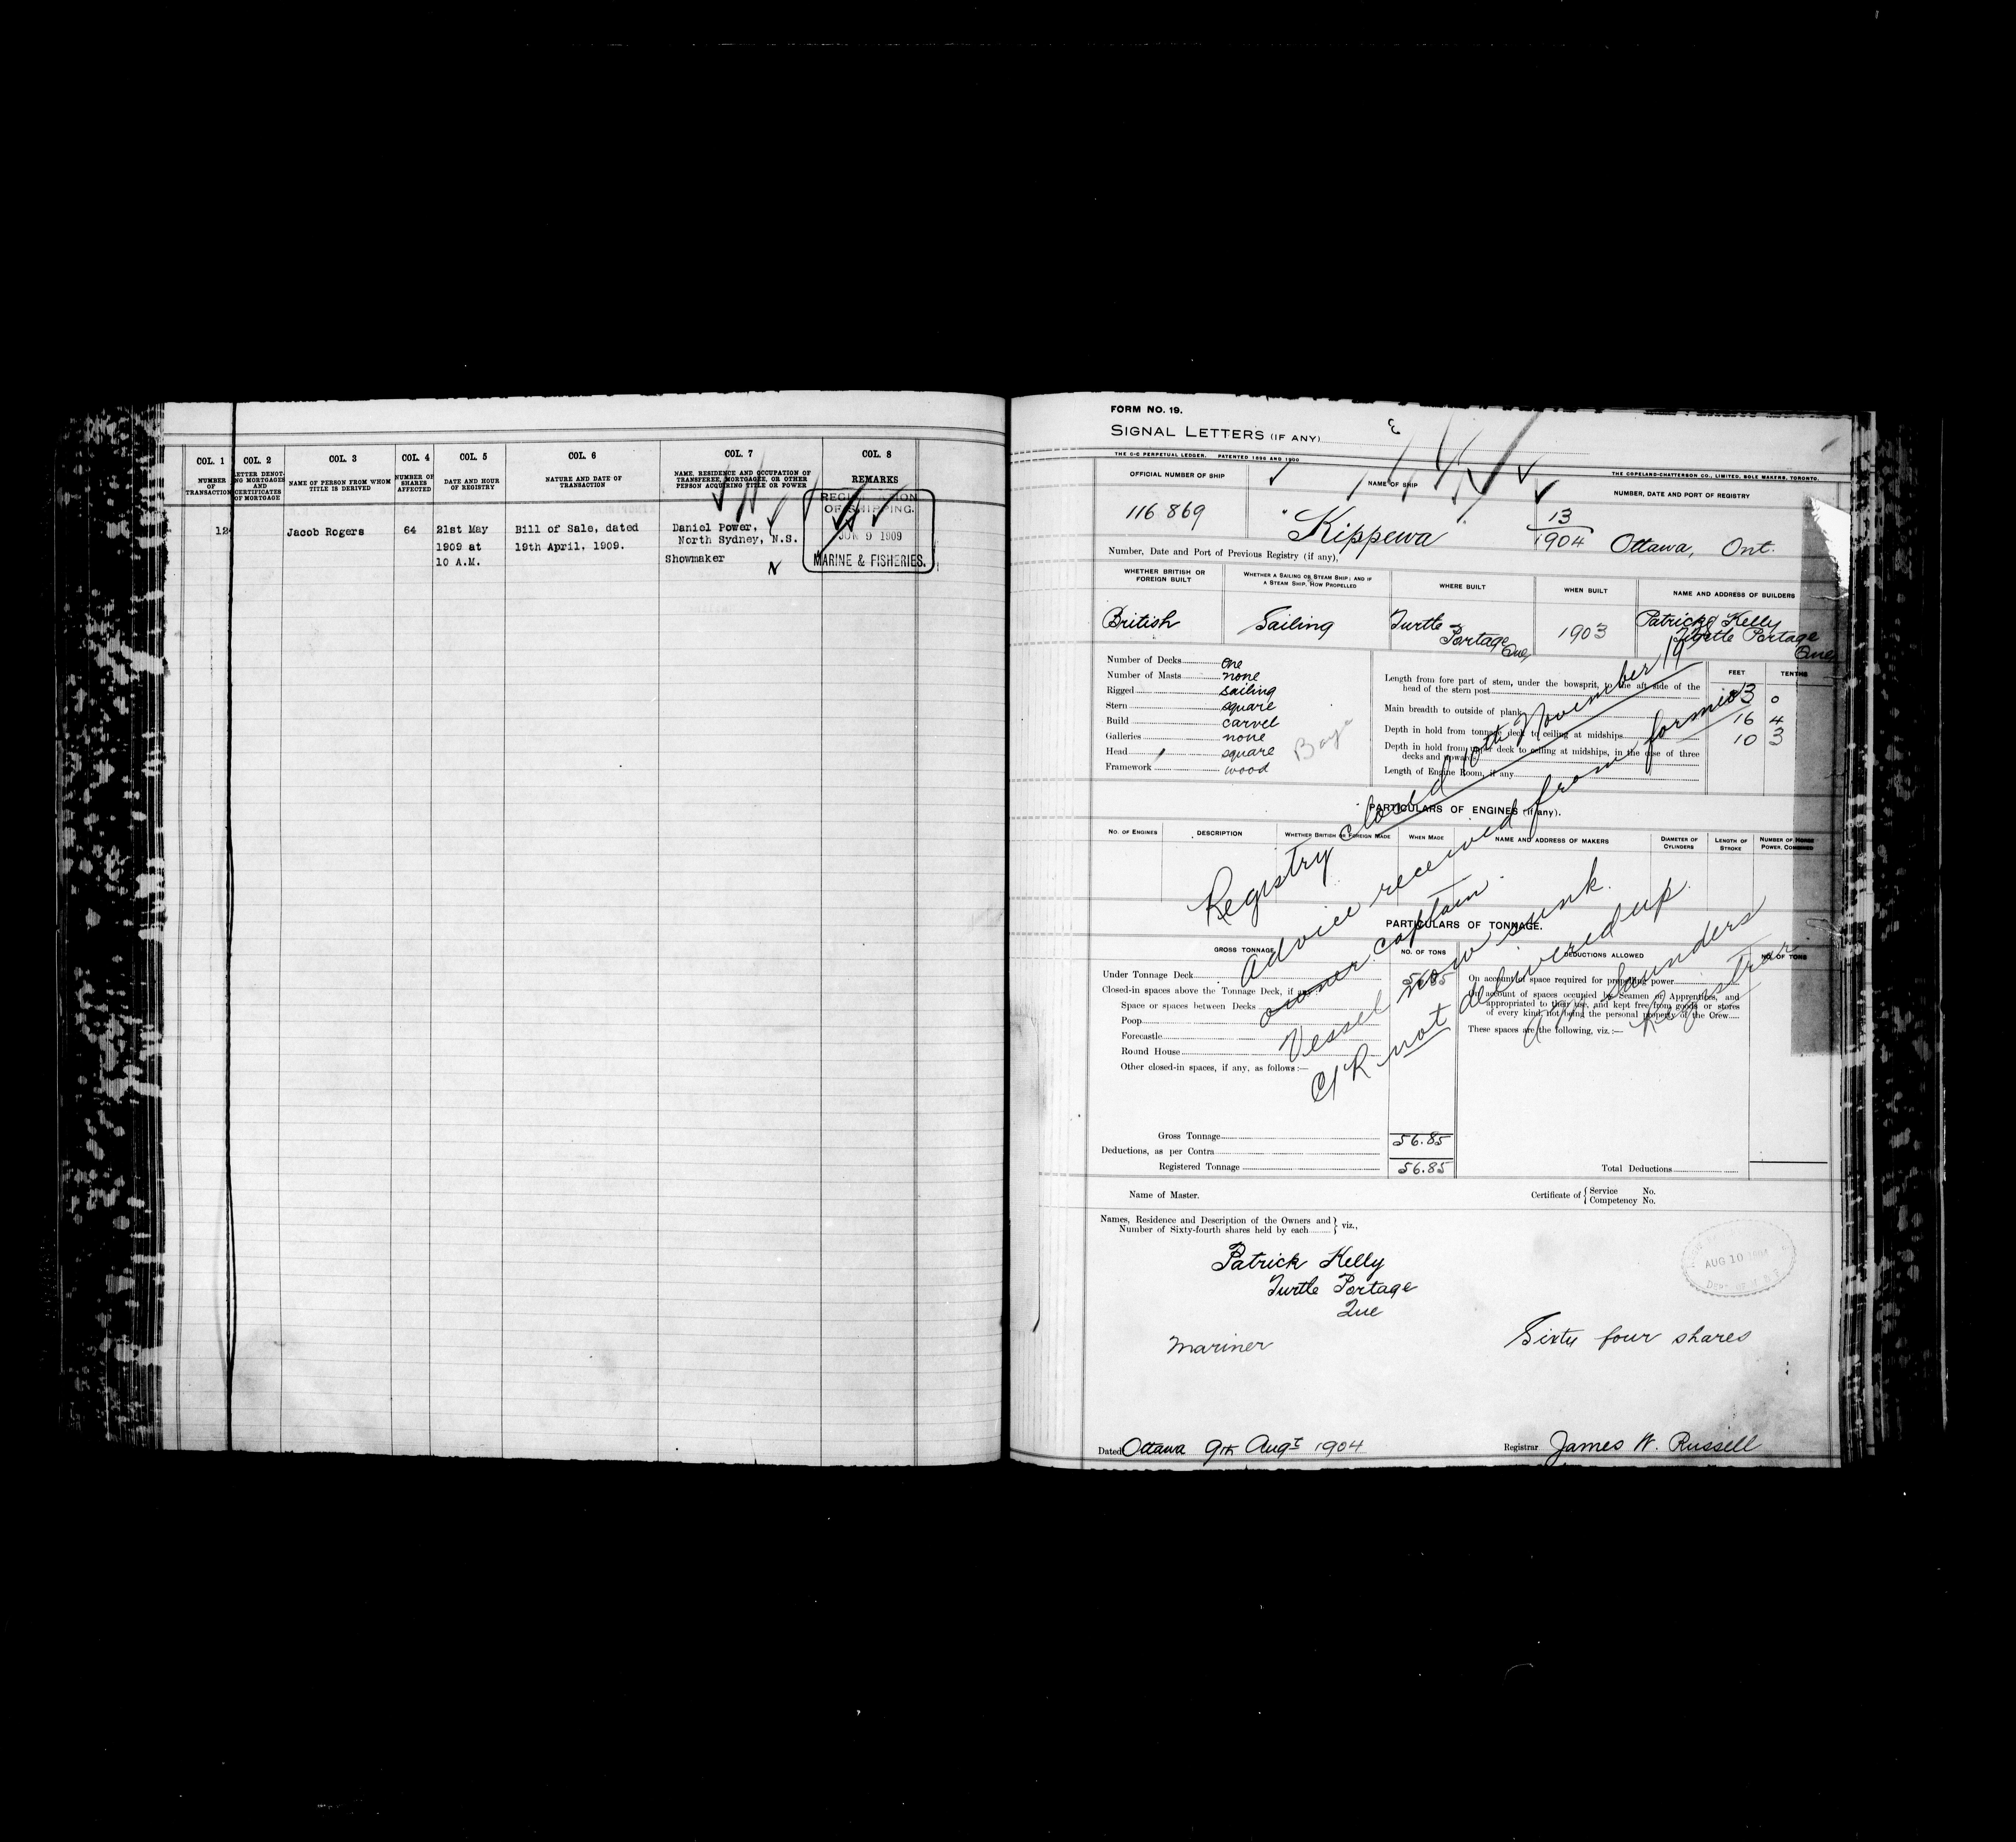 COL. 1
NUMBER
OF
TRANSACTION
COL. 2
LETTER DENOT-
ING MORTGAGES
AND
CERTIFICATES
OF MORTGAGE
COL. 3
NAME OF PERSON FROM WHOM
TITLE IS DERIVED
COL. 4
NUMBER OF
SHARES
AFFECTED
COL. 5
DATE AND HOUR
OF REGISTRY
COL. 6
NATURE AND DATE OF
TRANSACTION
COL. 7
NAME, RESIDENCE AND OCCUPATION OF
TRANSFEREE, MORTGAGEE, OR OTHER
PERSON ACQUIRING TITLE OR POWER
COL. 8
REMARKS
12
Jacob Rogers
64
21st May
1909 at
10 A.M.
Bill of Sale, dated
19th April, 1909.
Daniel Power,
North Sydney, N.S.
Showmaker
OF SHIPPING.
JUN 9 1909
MARINE & FISHERIES.
FORM NO. 19.
SIGNAL LETTERS (IF ANY)
THE C-C PERPETUAL LEDGER. PATENTED 1896 AND 1900
THE COPELAND-CHATTERSON CO., LIMITED, SOLE MAKERS, TORONTO.
OFFICIAL NUMBER OF SHIP
NAME OF SHIP
NUMBER, DATE AND PORT OF REGISTRY
116 869
"Kippewa"
13
1904 Ottawa, Ont.
Number, Date and Port of Previous Registry (if any),
WHETHER BRITISH OR
FOREIGN BUILT
WHETHER A SAILING OR STEAM SHIP; AND IF
A STEAM SHIP, HOW PROPELLED
WHERE BUILT
WHEN BUILT
NAME AND ADDRESS OF BUILDERS
British
Sailing
Turtle
Portage
Que
1903
Patrick Kelly
Turtle Portage
Que
Number of Decks one
Number of Masts none
Rigged sailing
Stern square
Build carvel
Galleries none
Head square
Framework wood
FEET TENTHS
Length from fore part of stem, under the bowsprit, to the aft side of the
head of the stern post
Main breadth to outside of plank 16 4
Depth in hold from tonnage deck to ceiling at midships 10 3
Depth in hold from upper deck to ceiling at midships, in the case of three
decks and upwards
Length of Engine Room, if any
PARTICULARS OF ENGINES (if any).
NO. OF ENGINES
DESCRIPTION
WHETHER BRITISH OR FOREIGN MADE
WHEN MADE
NAME AND ADDRESS OF MAKERS
DIAMETER OF
CYLINDERS
LENGTH OF
STROKE
NUMBER OF HORSE
POWER, COMBINED
Registry closed 10th November 19
Advice received from former
owner captain.
Vessel now sunk.
C/R not delivered up.
Saunders
Registrar
PARTICULARS OF TONNAGE.
GROSS TONNAGE
NO. OF TONS
DEDUCTIONS ALLOWED
NO. OF TONS
Under Tonnage Deck 56.85
Closed-in spaces above the Tonnage Deck, if any
Space or spaces between Decks
Poop
Forecastle
Round House
Other closed-in spaces, if any, as follows:—
On account of space required for propelling power
On account of spaces occupied by Seamen or Apprentices, and
appropriated to their use, and kept free from goods or stores
of every kind, not being the personal property of the Crew
These spaces are the following, viz.:—
Gross Tonnage 56.85
Deductions, as per Contra
Registered Tonnage 56.85
Total Deductions
Name of Master.
Certificate of { Service No.
Competency No.
Names, Residence and Description of the Owners and
Number of Sixty-fourth shares held by each } viz.,
Patrick Kelly
Turtle Portage
Que
AUG 10
Mariner
Sixty four shares
Dated Ottawa 9th Augt 1904
Registrar James W. Russell